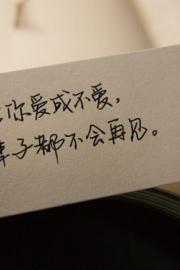 你爱成不爱,
辈子都不会再见。